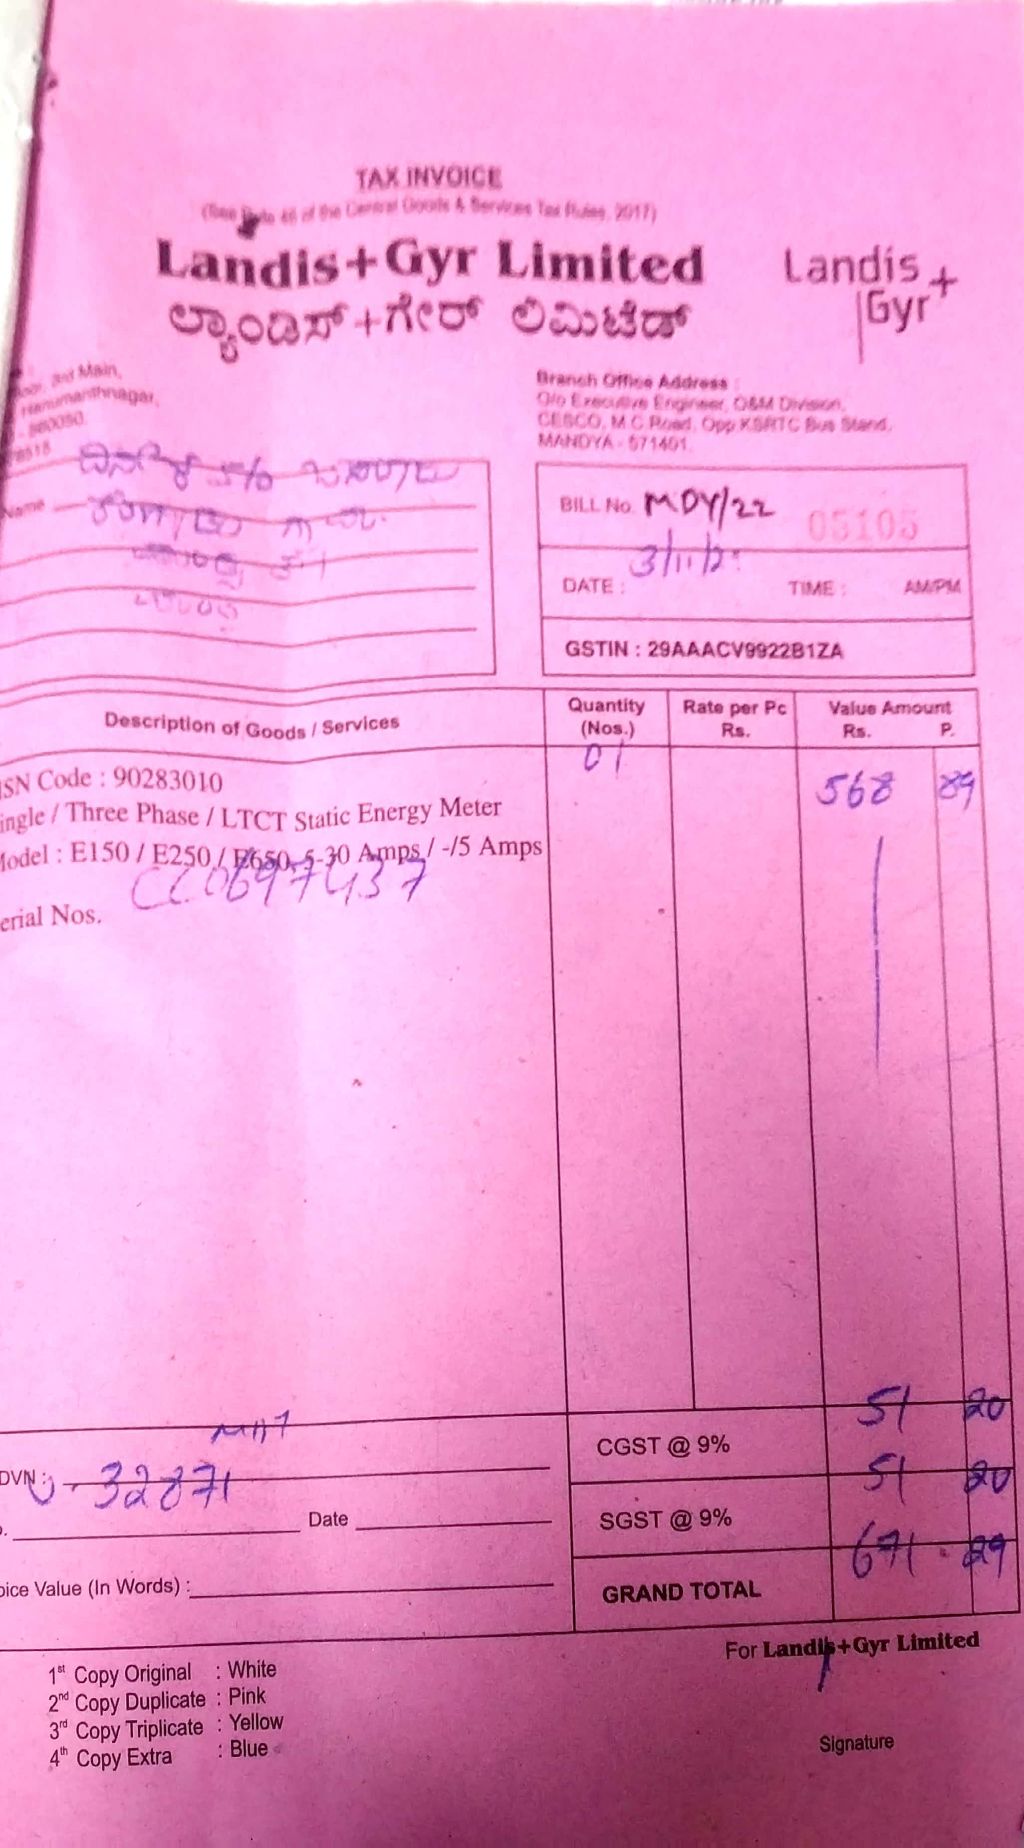 TAX INVOICE
(See Rule 46 of the Central Goods & Services Tax Rules, 2017)
Landis+Gyr Limited
Landis
Gyr+
ಲ್ಯಾಂಡಿಸ್+ಗೇರ್ ಲಿಮಿಟೆಡ್
3rd Main,
Hanumanthnagar,
Branch Office Address :
O/o Executive Engineer, O&M Division,
CESCO, M.C Road, Opp KSRTC Bus Stand,
MANDYA - 571401.
Name
BILL No. MDY/22 05105
DATE : 3/11/2
TIME : AM/PM
GSTIN : 29AAACV9922B1ZA
Description of Goods / Services
Quantity (Nos.)
Rate per Pc Rs.
Value Amount Rs. P.
01
SN Code : 90283010
568 89
ingle / Three Phase / LTCT Static Energy Meter
Model : E150 / E250 / E650, 5-30 Amps / -/5 Amps
erial Nos.
CGST @ 9% 51 20
DVN : 32871
SGST @ 9% 51 20
Date
oice Value (In Words) :
GRAND TOTAL 671.29
For Landis+Gyr Limited
1st Copy Original : White
2nd Copy Duplicate : Pink
3rd Copy Triplicate : Yellow
4th Copy Extra : Blue
Signature